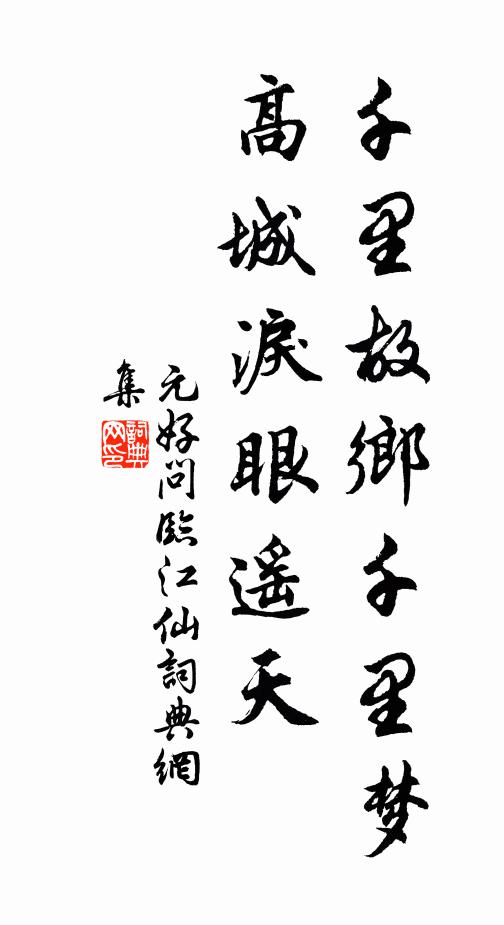 千里故鄉千里梦
高城淚眼遥天
元好问臨江仙詞典網
集
詞典网印